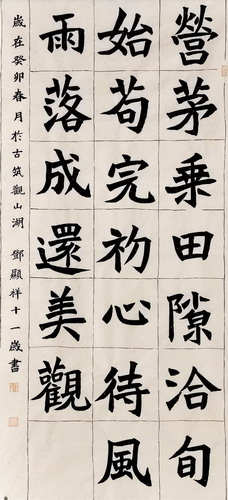 營茅乘田隙洽旬
始苟完初心待風
雨落成還美觀
歲在癸卯春月於古筑觀山湖 鄧顯祥十一歲書